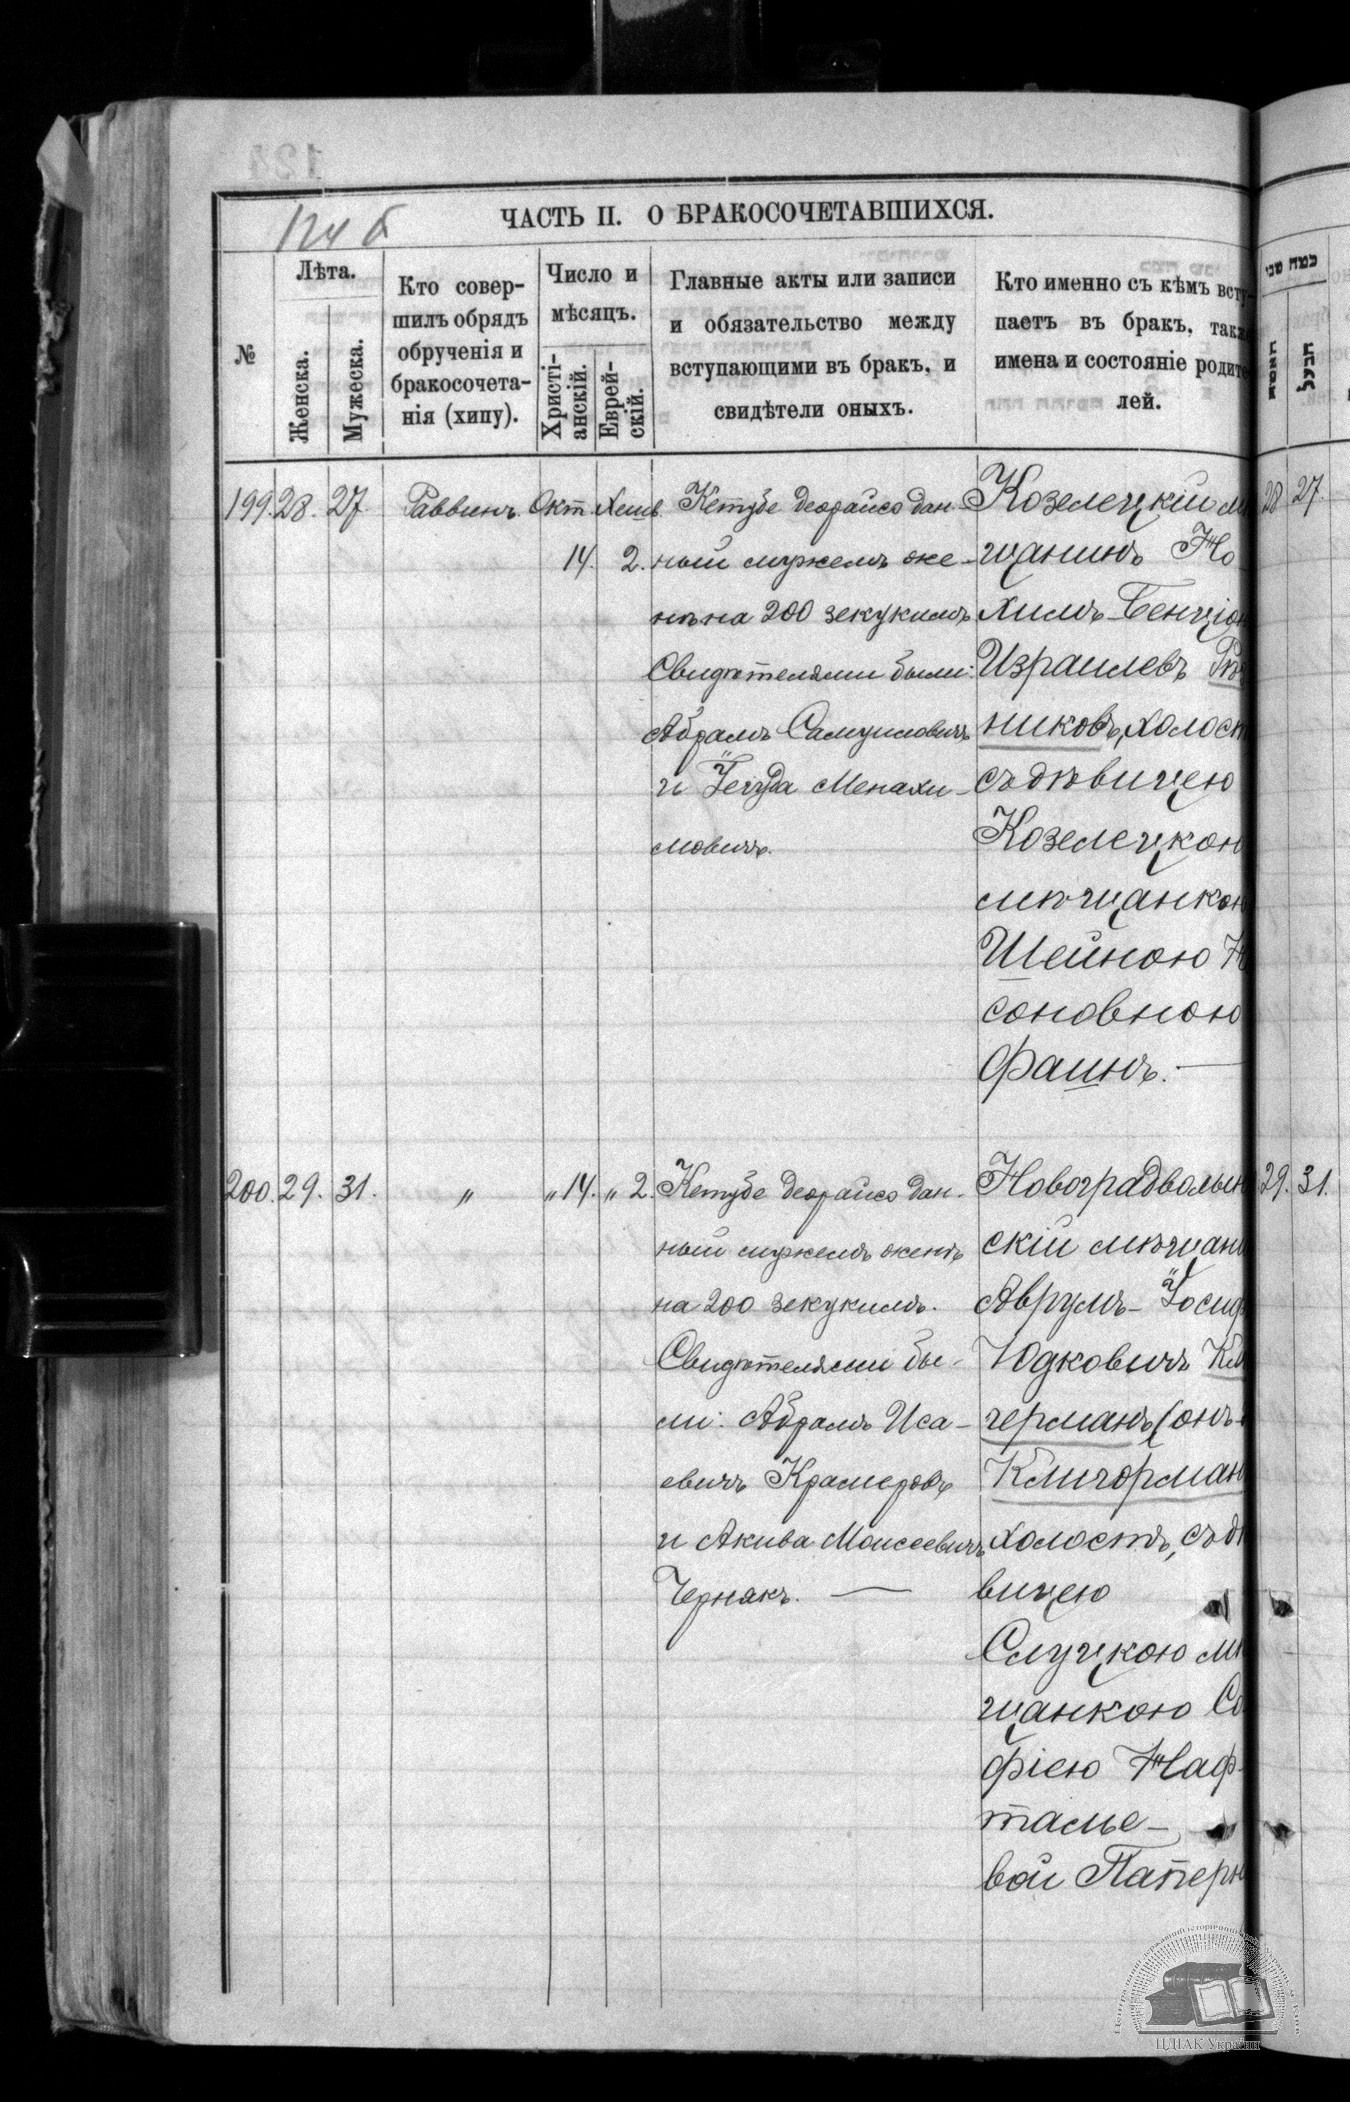 124 б
ЧАСТЬ II. О БРАКОСОЧЕТАВШИХСЯ.
№
Лѣта.
Женска.
Мужеска.
Кто совер-
шилъ обрядъ
обрученія и
бракосочета-
нія (хипу).
Число и
мѣсяцъ.
Христі-
анскій.
Еврей-
скій.
Главные акты или записи
и обязательство между
вступающими въ бракъ, и
свидѣтели оныхъ.
Кто именно съ кѣмъ всту-
паетъ въ бракъ, также
имена и состояніе родите-
лей.
199. 28. 27. Раввинъ. Окт. Хешв.
14. 2.
Кетубе деорайсо дан-
ный мужемъ же-
нѣ на 200 зекукимъ
Свидѣтелями были:
Абрамъ Самуиловичъ
и Іегуда Менахи-
мовичъ.
Козелецкій мѣ
щанинъ Но
химъ-Бенціон
Израилевъ Рѣз
никовъ, холост
съ дѣвицею
Козелецкою
мѣщанкою
Шейною Н
соновною
Файнъ. —
28 27.
200. 29. 31. " " 14. " 2.
Кетубе деорайсо дан-
ный мужемъ женѣ
на 200 зекукимъ.
Свидѣтелями бы-
ли: Абрамъ Иса-
евичъ Крамеровъ
и Акива Моисеевичъ
Чернякъ. —
Новоградволын
скій мѣщани
Аврумъ-Іосиф
Юдковичъ Кли
германъ (онъ-
Кличорман
холостъ, съ дѣ
вицею
Слуцкою мѣ
щанкою Со
фіею Наф-
талье-
вой Паперн
29. 31.
ЦДІАК України